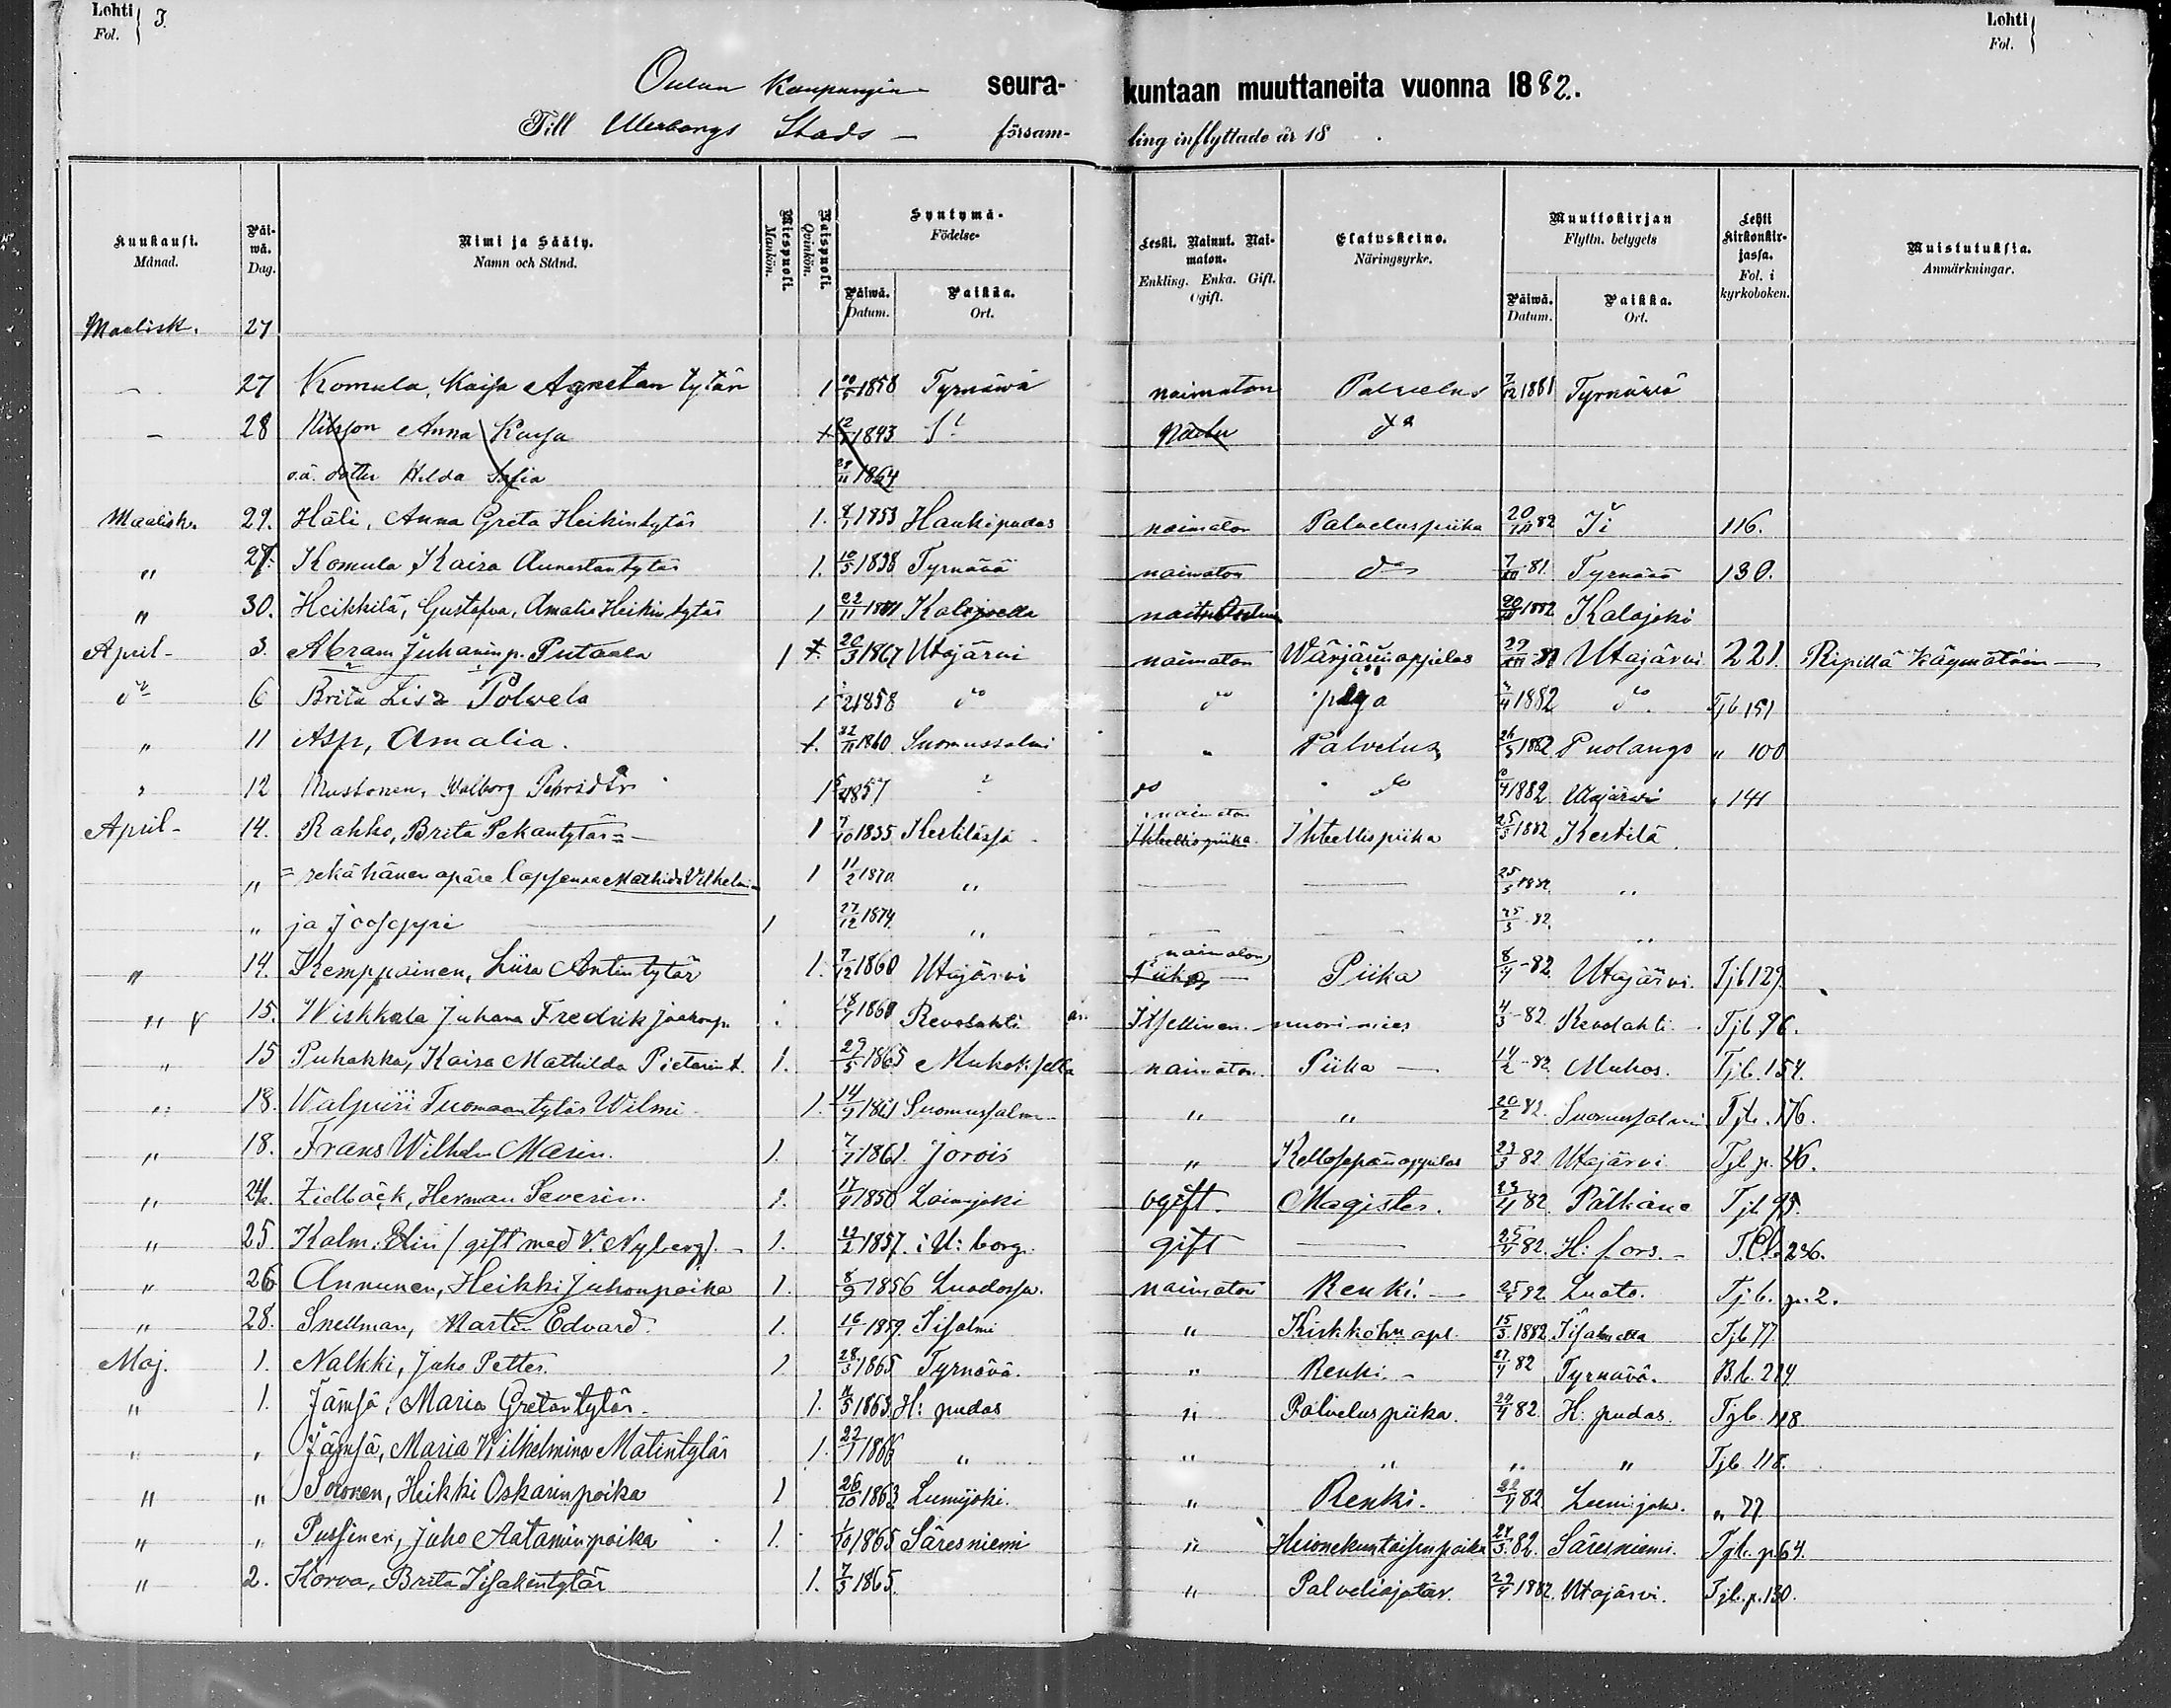 Lohti Fol. 3.
Lohti Fol.
Oulun Kaupungin seura- kuntaan muuttaneita vuonna 1882.
Till Uleåborgs Stads försam- ling inflyttade år 18 .
Kuukausi. Månad.
Päiwä. Dag.
Nimi ja Sääty. Namn och Stånd.
Miespuoli. Mankön.
Naispuoli. Qvinkön.
Syntymä- Födelse-
Päiwä. Datum.
Paikka. Ort.
Leski. Nainut. Naimaton. Enkling. Enka. Gift. Ogift.
Elatuskeino. Näringsyrke.
Muuttokirjan Flyttn. betygets
Päiwä. Datum.
Paikka. Ort.
Lehti kirkonkirjassa. Fol. i kyrkoboken.
Muistutuksia. Anmärkningar.
Maalisk. 27
— 27 Komula, Kaisa Agnetan tytär 1 10/5 1858 Tyrnäwä naimaton Palvelus 7/12 1881 Tyrnäwä
— 28 Nilsson Anna Kaisa 1843 do
o.ä. dotter Hilda Sofia 28/11 1864
Maalisk. 29. Häli, Anna Greta Heikintytär 1. 8/1 1853 Haukipudas naimaton Palveluspiika 20/III 82 Ii 116.
" 27. Komula, Kaisa Aunestantytär 1. 10/5 1838 Tyrnävä naimaton do 7/ 81. Tyrnävä 130.
" 30. Heikkilä, Gustafva, Amalia Heikintytär 1 22/11 Kalajoella 1882 Kalajoki
April 3. Abram Juhaninp. Putaala 1 20/3 1867 Utajärvi naimaton Wärjärinoppilas 29/III 82 Utajärvi 221. Ripillä käymätöin —
do 6 Brita Lisa Polwela 1 1858 do do piga 4/4 1882 do. Tjb 151
" 11 Asp, Amalia. 1. 22/11 1860 Suomussalmi " Palvelus 26/3 1882 Puolango " 100
" 12 Mustonen, Walborg 1 1857 do do 1882 Utajärvi " 144
April 14. Rahko, Brita Pekantytär = 1 7/10 1835 Kestilässä naimaton Ihteellispiika 25/3 1882 Kestilä
" = sekä hänen äpärä lapsensa Mathilda Vilhelmina 1 11/2 1870 " — — 25/3 1882. "
" ja Jooseppi 1 27/12 1874. " — — 25/3 -82. "
" 14. Kemppainen, Liisa Antintytär 1. 7/12 1860 Utajärvi naimaton Piika 8/4 -82. Utajärvi. Tjb 129.
" 15. Wiskkala Juhana Fredrik Jaakonp. 1860 Revolahti Itsellinen nuorimies 4/3 -82 Revolahti. Tjb. 96.
" 15 Puhakka, Kaisa Mathilda Pietarint. 1. 29/5 1865 Muhoksella naimaton. Piika — 14/2 -82. Muhos. Tjb. 154.
" 18. Walpuri Tuomaantytär Wilmi 1. 14/9 1861 Suomussalmi " " 20/2 82. Suomussalmi Tjb. 176.
" 18. Frans Wilhelm Masin. 1. 7/7 1861. Jorois " Kellosepänoppilas 23/3 82 Utajärvi Tjb p. 46.
" 24. Zidbäck, Herman Severin. 1. 17/9 1850 Lainijoki ogift. Magister. 23/4 82. Pälkäne Tjb 95.
" 25 Kalm. Elin (gift med V. Nyberg). 1. 12/2 1857. U: borg. gift — 25/4 82. H: fors. 236.
" 26 Annunen, Heikki Juhonpoika 1. 8/9 1856 Luodossa. naimaton Renki. — 25/4 82. Luoto. Tjb. p. 2.
" 28. Snellman, Martin Edvard. 1. 16/1 1859. Iisalmi " 15/3. 1882. Iisalmella Tjb 77
Maj. 1. Nalkki, Juho Petter. 1 28/3 1865 Tyrnävä. " Renki. 27/4 82 Tyrnävä. B.b. 214.
" 1. Jämsä, Maria Gretantytär. 1. 1863. H: pudas " Palveluspiika. 24/4 82 H: pudas. Tjb. 118.
" " Jämsä, Maria Wilhelmina Matintytär 1. 22/1 1866 " " " " " Tjb. 118.
" " Soronen, Heikki Oskarinpoika 1 26/10 1863 Lumijoki. " Renki. 22/4 82 Lumijok. " 77
" " Pussinen, Juho Aataminpoika 1. 1/10 1865 Säresniemi " 24/3. 82. Säresniemi. Tjb. p. 64.
" 2. Korva, Brita Iisakintytär 1. 7/3 1865. " Palveliajatar. 29/4 1882. Utajärvi. Tjb. p. 130.